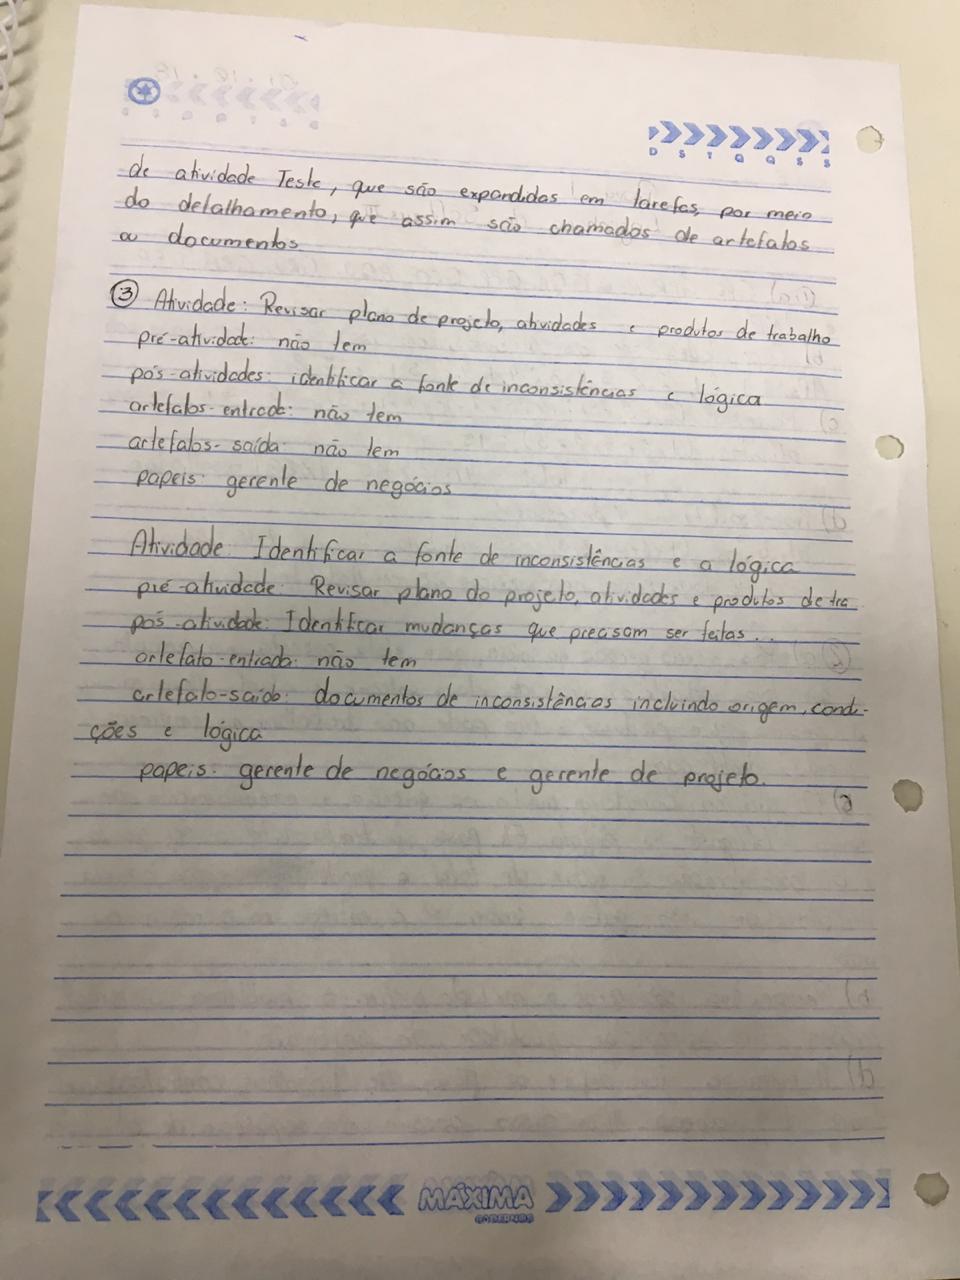 D S T Q Q S S
de atividade Teste, que são expandidas em tarefas, por meio
do detalhamento, que assim são chamados de artefatos
ou documentos
③ Atividade: Revisar plano de projeto, atividades e produtos de trabalho
pré-atividade: não tem
pós-atividades: identificar a fonte de inconsistências e lógica
artefatos-entrada: não tem
artefatos-saída: não tem
papeis: gerente de negócios
Atividade: Identificar a fonte de inconsistências e a lógica
pré-atividade: Revisar plano do projeto, atividades e produtos de tra
pós-atividade: Identificar mudanças que precisam ser feitas...
artefato-entrada: não tem
artefato-saída: documentos de inconsistências incluindo origem, condi-
ções e lógica
papeis: gerente de negócios e gerente de projeto.
MÁXIMA
CADERNOS